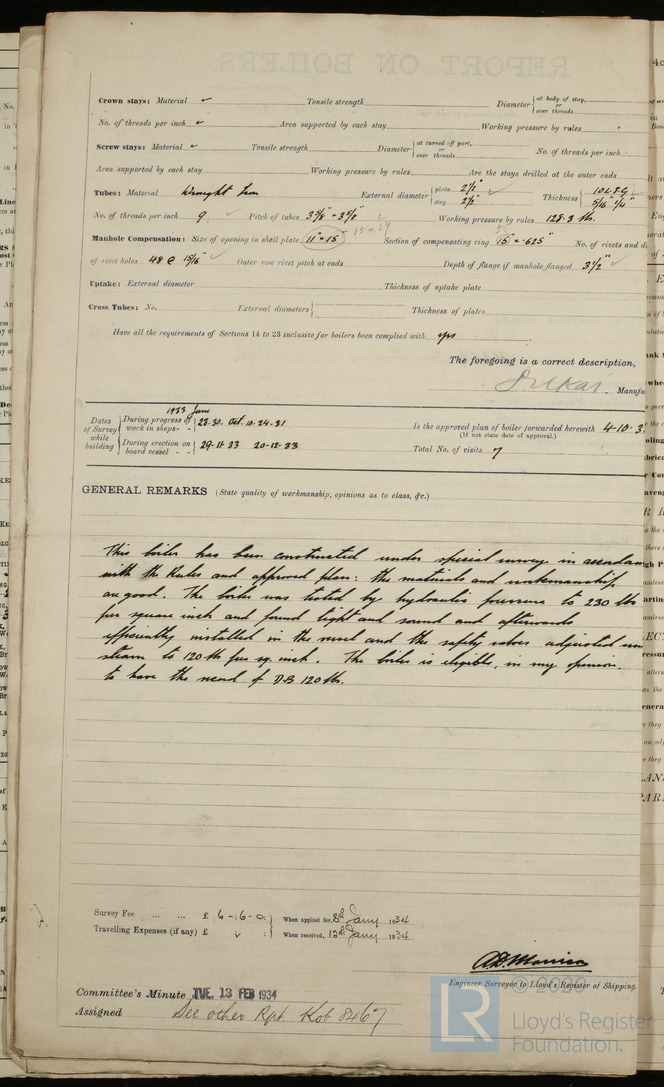 Crown stays: Material ✓ Tensile strength Diameter { at body of stay, or over threads
No. of threads per inch ✓ Area supported by each stay Working pressure by rules
Screw stays: Material ✓ Tensile strength Diameter { at turned off part, or over threads No. of threads per inch
Area supported by each stay Working pressure by rules Are the stays drilled at the outer ends
Tubes: Material Wrought Iron External diameter { plain 2½" stay 2½" Thickness { 10 L.S.G 5/16" ¼"
No. of threads per inch 9 Pitch of tubes Working pressure by rules 128.3 lb.
Manhole Compensation: Size of opening in shell plate 11" × 15" 15 × 19 Section of compensating ring No. of rivets and di
of rivet holes 48 @ 15/16" Outer row rivet pitch at ends Depth of flange if manhole flanged 3½"
Uptake: External diameter Thickness of uptake plate
Cross Tubes: No. External diameters { Thickness of plates
Have all the requirements of Sections 14 to 23 inclusive for boilers been complied with yes
The foregoing is a correct description,
Manufa
Dates of Survey while building { During progress of work in shops - - 1933 June 22.30. Oct. 10.24.31
During erection on board vessel - - 29-11-33 20-12-33
Is the approved plan of boiler forwarded herewith 4-10-3
(If not state date of approval.)
Total No. of visits 7
GENERAL REMARKS (State quality of workmanship, opinions as to class, &c.)
This boiler has been constructed under special survey in accordan
with the Rules and approved plan: the materials and workmanship
are good. The boiler was tested by hydraulic pressure to 230 lbs
per square inch and found tight and sound and afterwards
efficiently installed in the vessel and the safety valves adjusted un
steam to 120 lb per sq. inch. The boiler is eligible, in my opinion.
to have the record of D.B 120 lb.
Survey Fee ... ... £ 6-:6-0: When applied for, 8th Jany 1934
Travelling Expenses (if any) £ : : When received, 12th Jany 1934
Engineer Surveyor to Lloyd's Register of Shipping.
Committee's Minute TUE. 13 FEB 1934
Assigned See other Rpt. Kob 8467
© 2020
LR
Lloyd's Register
Foundation.